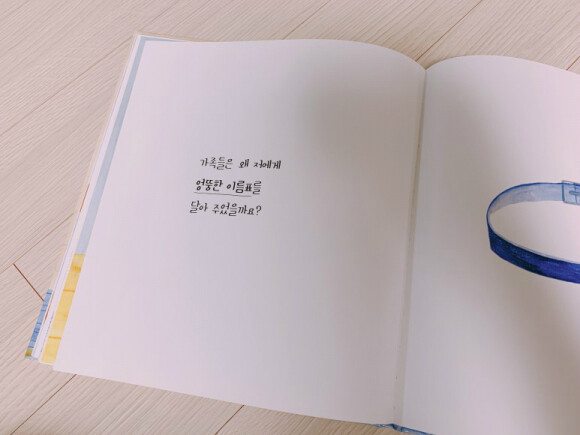 가족들은 왜 저에게
엉뚱한 이름표를
달아 주었을까요?